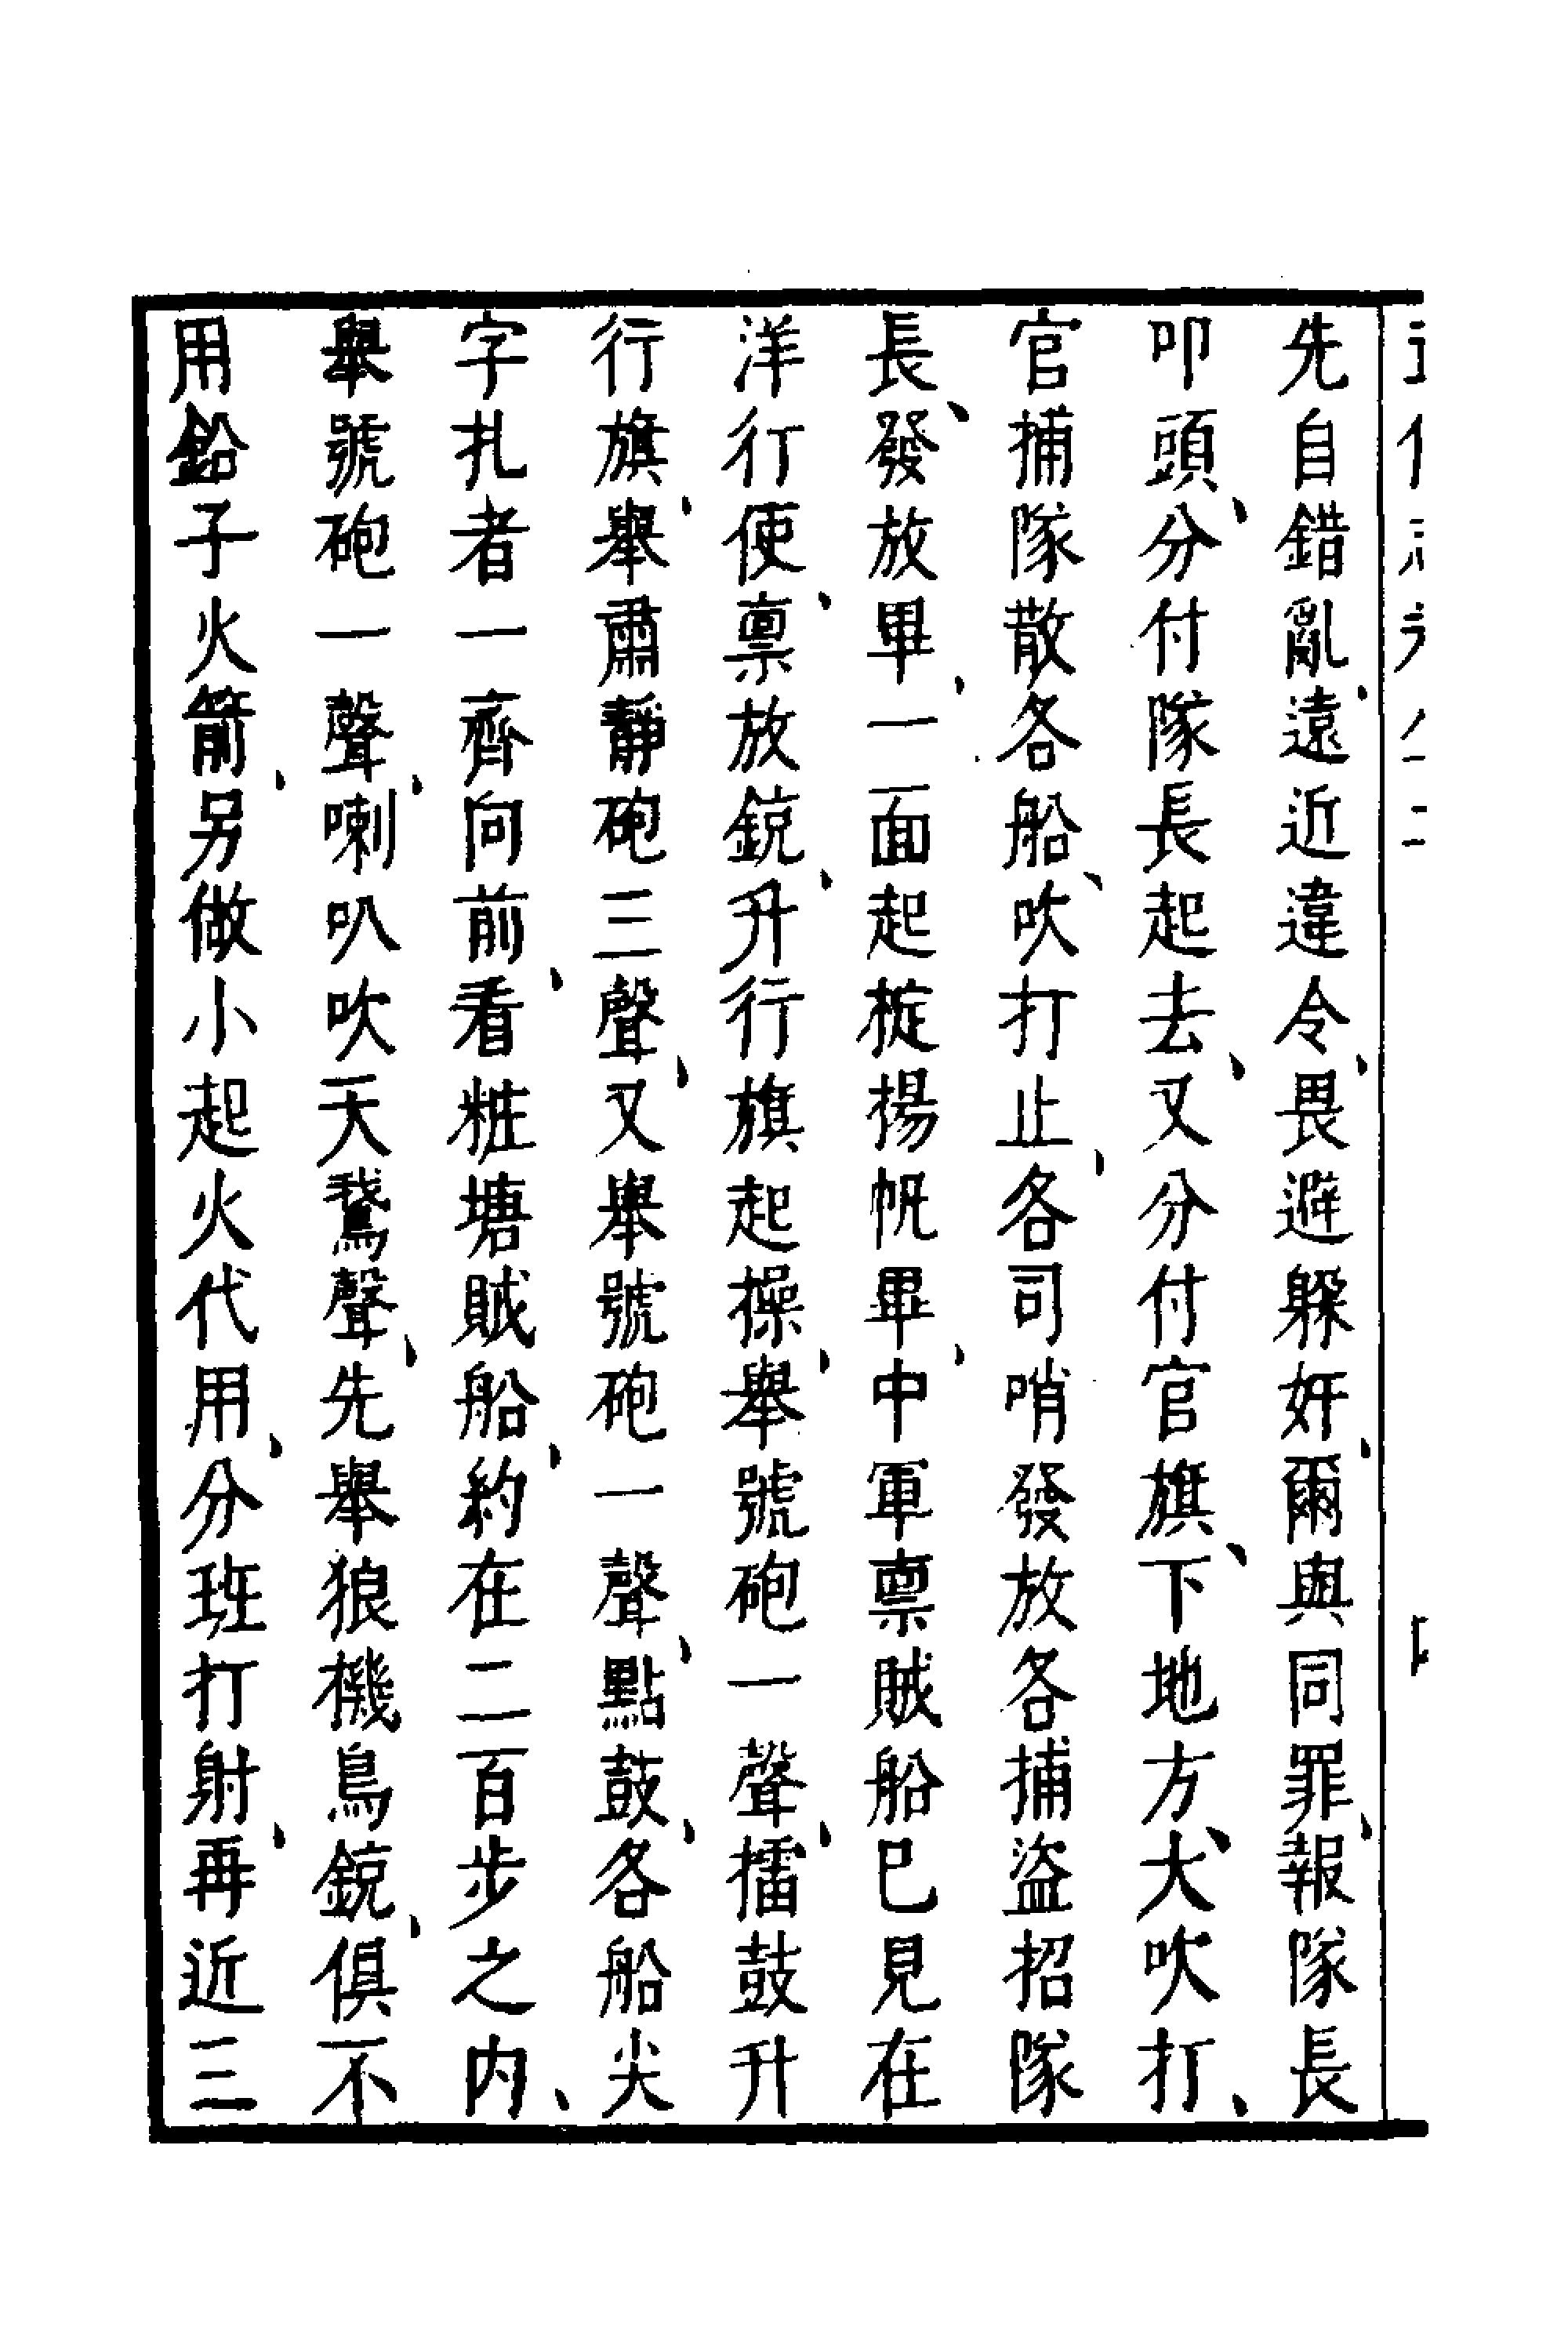 先自錯亂、遠近違令、畏避躲奸、爾與同罪、報隊長
叩頭、分付隊長起去、又分付官旗、下地方、大吹打、
官捕隊散各船、吹打止、各司哨發放各捕盜招隊
長、發放畢、一面起椗揚帆畢、中軍禀賊船已見在
洋行使、禀放銃、升行旗起操、舉號砲一聲、擂鼓升
行旗、舉肅靜砲三聲、又舉號砲一聲、點鼓、各船尖
字扎者一齊向前、看粧塘賊船、約在二百步之內、
舉號砲一聲、喇叭吹天鵞聲、先舉狼機鳥銃、俱不
用鉛子火箭、另做小起火代用、分班打射、再近三